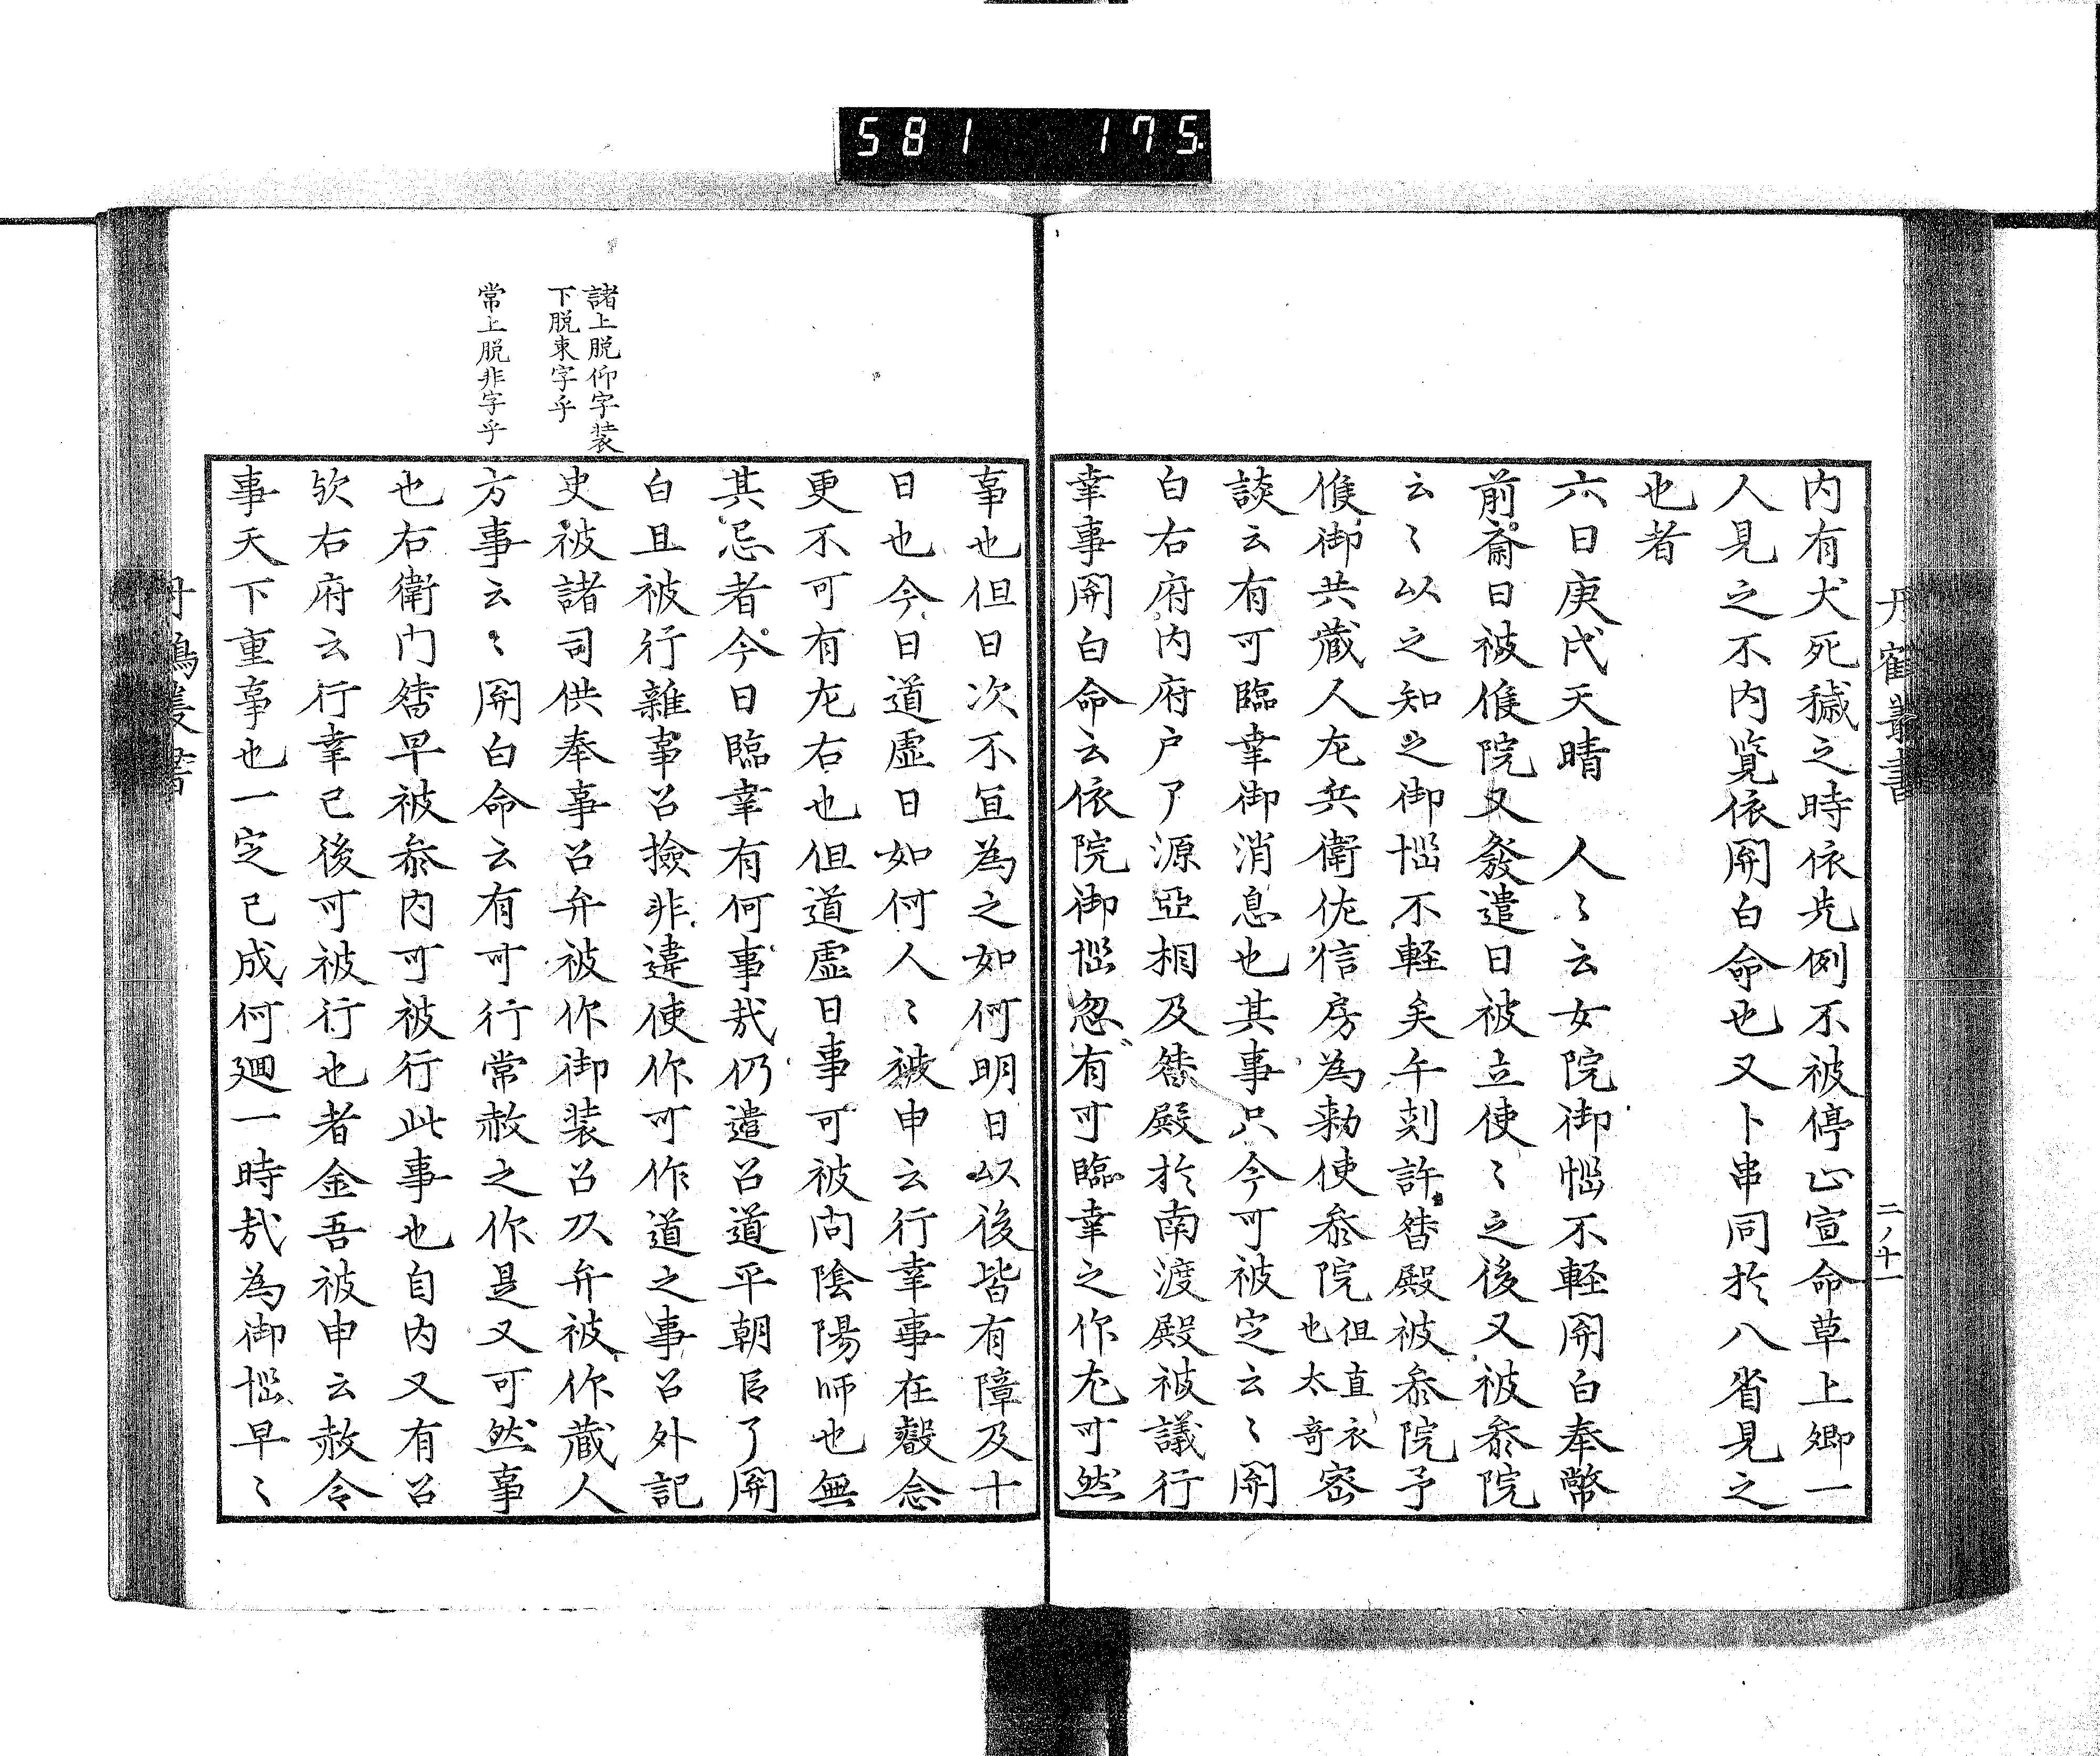 581 175
丹鶴叢書
二ノ十一
内有犬死穢之時依先例不被停止宣命草上卿一
人見之不内覧依関白命也又卜串同於八省見之
也者
六日庚戌天晴　人〻云女院御悩不軽関白奉幣
前斎日被候院又發遣日被立使〻之後又被参院
云〻以之知之御悩不軽矣午刻許督殿被参院予
候御共蔵人左兵衛佐信房為勅使参院但直衣也太奇密
談云有可臨幸御消息也其事只今可被定云〻関
白右府内府戸了源亞相及督殿於南渡殿被議行
幸事関白命云依院御悩忽有可臨幸之作尤可然
事也但日次不宜為之如何明日以後皆有障及十
日也今日道虚日如何人〻被申云行幸事在叡念
更不可有左右也但道虚日事可被问陰陽师也無
其忌者今日臨幸有何事哉仍遣召道平朝臣了関
白且被行雜事召撿非違使作可作道之事召外記
史被諸司供奉事召弁被作御装召又弁被作蔵人
方事云〻関白命云有可行常赦之作是又可然事
也右衛门督早被参内可被行此事也自内又有召
欤右府云行幸已後可被行也者金吾被申云赦令
事天下重事也一定已成何廻一時哉為御悩早〻
諸上脱仰字装
下脱束字乎
常上脱非字乎